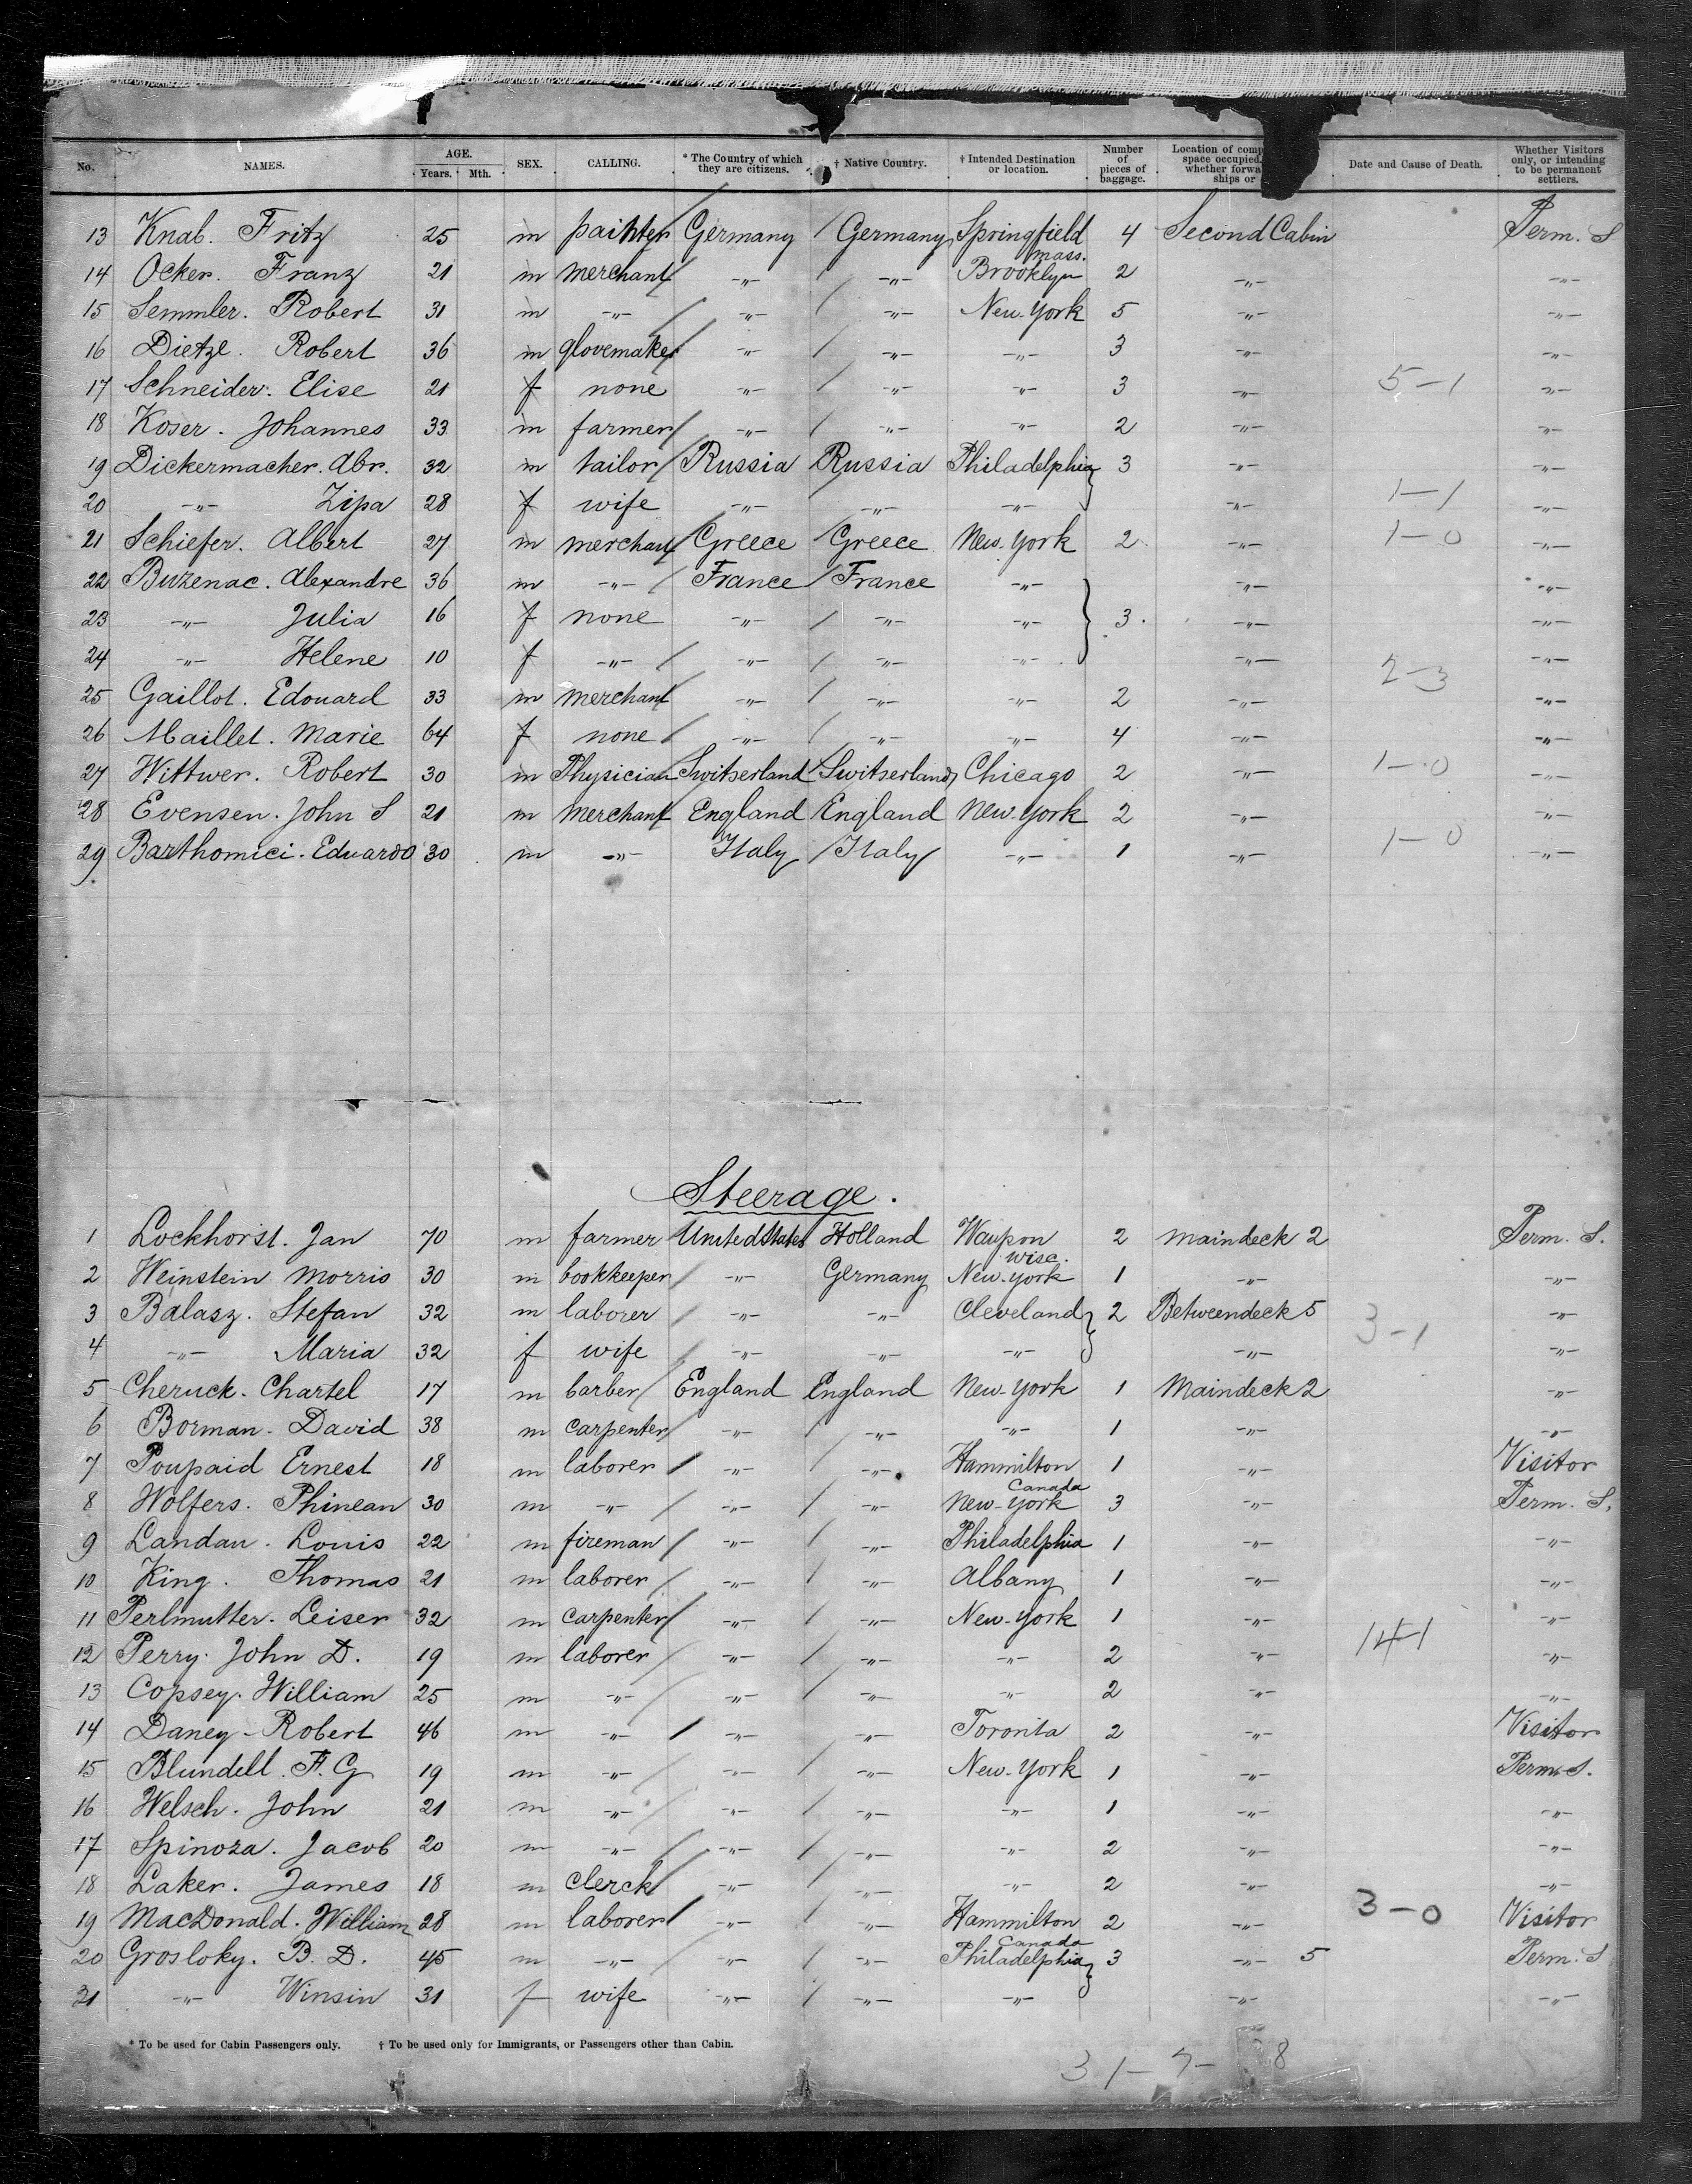 No. NAMES. AGE. Years. Mth. SEX. CALLING. * The Country of which they are citizens. † Native Country. † Intended Destination or location. Number of pieces of baggage. Location of comp space occupied, whether forwa ships or Date and Cause of Death. Whether Visitors only, or intending to be permanent settlers.
13 Knab. Fritz 25 m painter Germany Germany Springfield Mass. 4 Second Cabin Perm. S
14 Ocker. Franz 21 m merchant -"- -"- Brooklyn 2 -"- -"-
15 Semmler. Robert 31 m -"- -"- -"- New-York 5 -"- -"-
16 Dietze. Robert 36 m glovemaker -"- -"- -"- 3 -"- -"-
17 Schneider. Elise 21 f none -"- -"- -"- 3 -"- 5-1 -"-
18 Koser. Johannes 33 m farmer -"- -"- -"- 2 -"- -"-
19 Dickermacher. Abr. 32 m tailor Russia Russia Philadelphia 3 -"- -"-
20 -"- Zipa 28 f wife -"- -"- -"- -"- 1-1 -"-
21 Schiefer. Albert 27 m merchant Greece Greece New-York 2 -"- 1-0 -"-
22 Buzenac. Alexandre 36 m -"- France France -"- -"- -"-
23 -"- Julia 16 f none -"- -"- -"- 3 -"- -"-
24 -"- Helene 10 f -"- -"- -"- -"- -"- -"-
25 Gaillot. Edouard 33 m merchant -"- -"- -"- 2 -"- 2-3 -"-
26 Maillet. Marie 64 f none -"- -"- -"- 4 -"- -"-
27 Wittwer. Robert 30 m Physician Switserland Switserland Chicago 2 -"- 1-0 -"-
28 Evensen. John S 21 m merchant England England New-York 2 -"- -"-
29 Barthomici. Eduardo 30 m -"- Italy Italy -"- 1 -"- 1-0 -"-
Steerage.
1 Lockhorst. Jan 70 m farmer United States Holland Waupon Wisc. 2 Maindeck 2 Perm. S.
2 Weinstein Morris 30 m bookkeeper -"- Germany New-York 1 -"- -"-
3 Balasz. Stefan 32 m laborer -"- -"- Cleveland 2 Betweendeck 5 3-1 -"-
4 -"- Maria 32 f wife -"- -"- -"- -"- -"-
5 Cheruck. Chartel 17 m barber England England New-York 1 Maindeck 2 -"-
6 Borman. David 38 m carpenter -"- -"- -"- 1 -"- -"-
7 Poupaid Ernest 18 m laborer -"- -"- Hammilton Canada 1 -"- Visitor
8 Wolfers. Phinean 30 m -"- -"- -"- New-York 3 -"- Perm. S.
9 Landau. Louis 22 m fireman -"- -"- Philadelphia 1 -"- -"-
10 King. Thomas 21 m laborer -"- -"- Albany 1 -"- -"-
11 Perlmutter. Leiser 32 m carpenter -"- -"- New-York 1 -"- -"-
12 Perry. John D. 19 m laborer -"- -"- -"- 2 -"- 14-1 -"-
13 Copsey. William 25 m -"- -"- -"- -"- 2 -"- -"-
14 Daney-Robert 46 m -"- -"- -"- Toronta 2 -"- Visitor
15 Blundell. F. G 19 m -"- -"- -"- New-York 1 -"- Perm. S.
16 Welsch. John 21 m -"- -"- -"- -"- 1 -"- -"-
17 Spinoza. Jacob 20 m -"- -"- -"- -"- 2 -"- -"-
18 Laker. James 18 m clerck -"- -"- -"- 2 -"- -"-
19 MacDonald. William 28 m laborer -"- -"- Hammilton Canada 2 -"- 3-0 Visitor
20 Grosloky. B. D. 45 m -"- -"- -"- Philadelphia 3 -"- 5 Perm. S
21 -"- Winsin 31 f wife -"- -"- -"- -"- -"-
* To be used for Cabin Passengers only. † To be used only for Immigrants, or Passengers other than Cabin.
31-7- 8